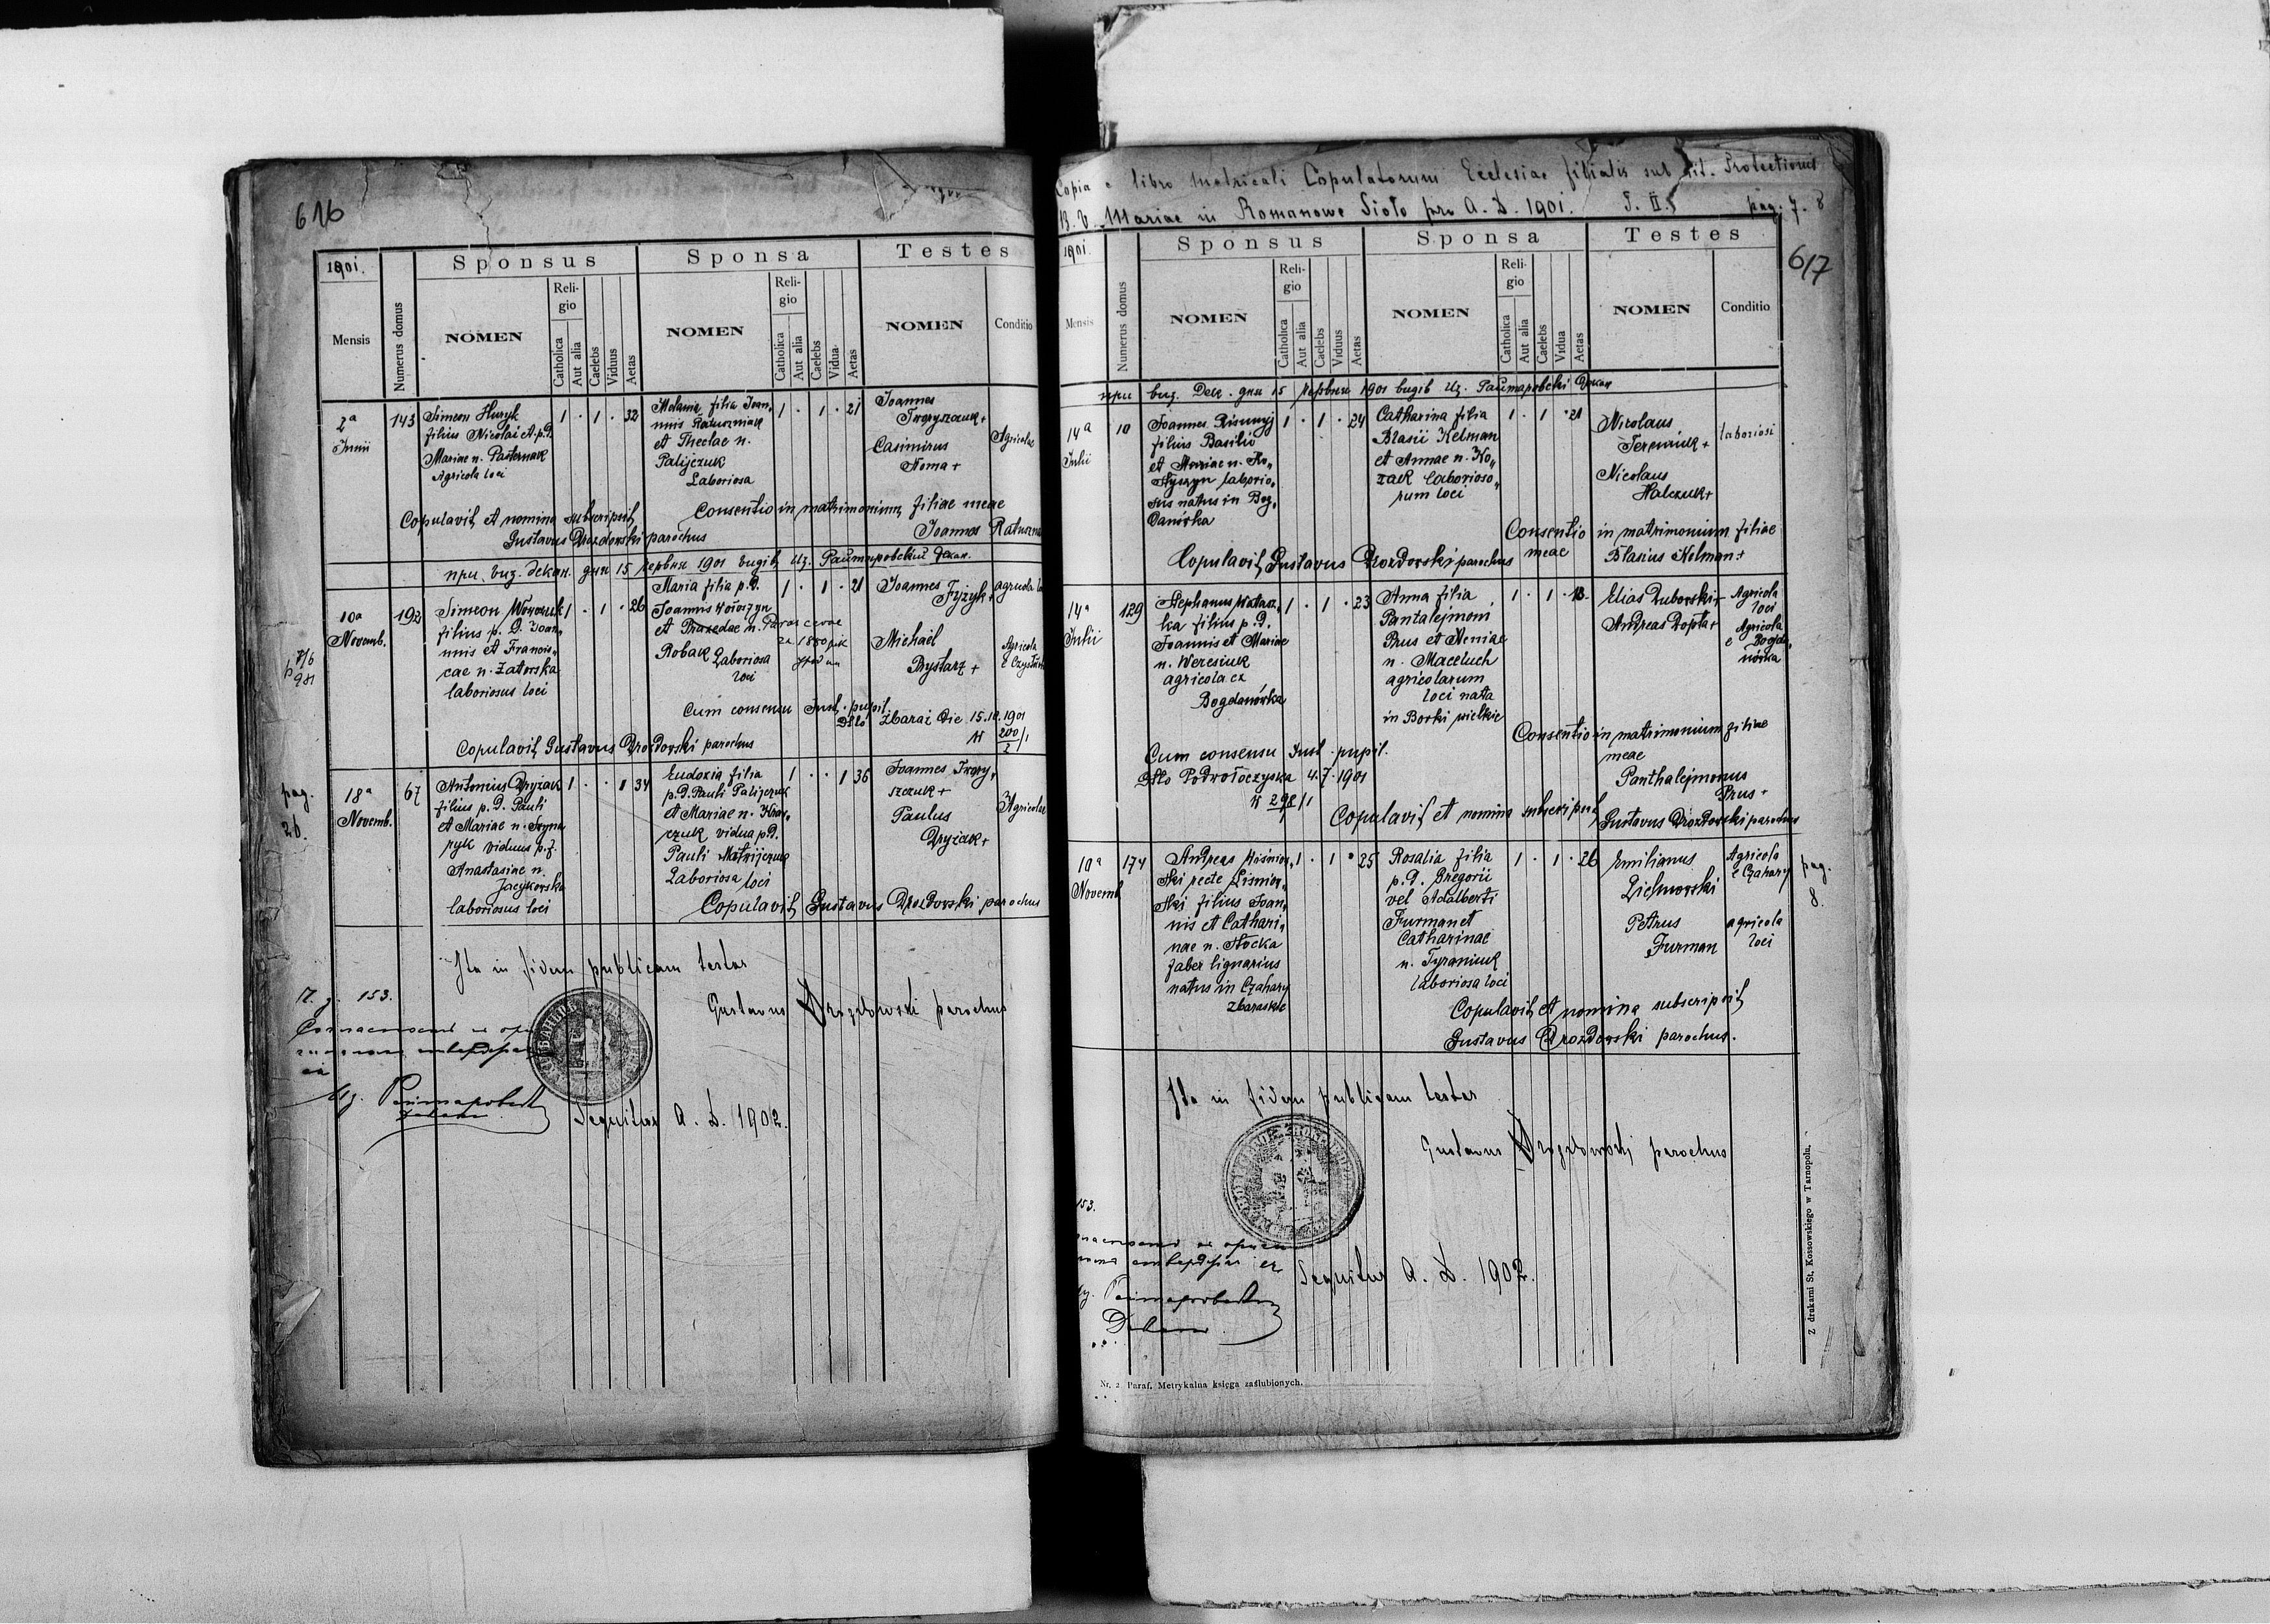 616
1901.
Mensis
Numerus domus
Sponsus
NOMEN
Religio
Catholica
Aut alia
Caelebs
Viduus
Aetas
Sponsa
NOMEN
Religio
Catholica
Aut alia
Caelebs
Vidua
Aetas
Testes
NOMEN
Conditio
2a
Junii
143
Simeon Huryk
filius Nicolai et p.d.
Mariae n. Pasternak
Agricola loci
1 . 1 . 32
Melania filia Joan„
nnis Ratuszniak
et Theclae n.
Palijczuk
Laboriosa
1 . 1 . 21
Joannes
Tworyszczuk +
Casimirus
Noma +
Agricolae
Copulavit et nomina subscripsit
Gustavus Drozdowski parochus
Consentio in matrimonium filiae meae
Joannes
при. виз. декан. дня 15 червня 1901 видів
10a
Novemb.
192
Simeon
filius p. d. Joan„
nnis et Francis„
cae n. Zatorska
laboriosus loci
1 . 1 . 26
Maria filia p.d.
Joannis Wołoszyn
et Praxedae n. Parascevae
Robak Laboriosa
loci
1 . 1 . 21
Joannes
Fizyk +
agricola
Michaël
Bystarz +
Agricola
Cum consensu Jud. pupil.
Dtto Zbaraż die 15.10.1901
200/1
2
Copulavit Gustavus Drozdowski parochus
pag.
26.
18a
Novemb.
67
Antonius Dryzak
filius p. d. Pauli
et Mariae n.
viduus p.f.
Anastasiae n.
Jacykowska
laboriosus loci
1 . . 1 34
Eudoxia filia
p. d. Pauli Palijczuk
et Mariae n. Kraw„
czuk vidua p.d.
Pauli Matwijczuk
Laboriosa loci
1 . . 1 36
Joannes Twory„
szczuk +
Paulus
Dryzak +
Agricolae
Copulavit Gustavus Drozdowski parochus
Ita in fidem publicam testor
Gustavus Drozdowski parochus
153.
Sequitur A. D. 1902.
Copia e libro Metricali Copulatorum Ecclesiae filialis sub tit. Protectionis
B. V. Mariae in Romanowe Sioło pro A. D. 1901. T. II. pag. 7. 8
617
1901.
Mensis
Numerus domus
Sponsus
NOMEN
Religio
Catholica
Aut alia
Caelebs
Viduus
Aetas
Sponsa
NOMEN
Religio
Catholica
Aut alia
Caelebs
Vidua
Aetas
Testes
NOMEN
Conditio
при виз. Дек. дня 15 червня 1901 видів
14a
Julii
10
Joannes
filius Basilii
et Mariae n. Ko„
styszyn laborio„
sus natus in Bog„
danówka
1 . 1 . 24
Catharina filia
Blasii Kelman
et Annae n. Ko„
zak laborioso„
rum loci
1 . 1 . 21
Nicolaus
Tereszczuk +
Nicolaus
Halczuk +
laboriosi
Consentio in matrimonium filiae
meae Blasius Kelman +
Copulavit Gustavus Drozdowski parochus
14a
Julii
129
Stephanus
ka filius p. d.
Joannis et Mariae
n. Weresiuk
agricola ex
Bogdanówka
1 . 1 . 23
Anna filia
Pantalejmoni
Prus et Xeniae
n. Maceluch
agricolarum
loci nata
in Borki wielkie
1 . 1 . 18
Elias Duborski +
Agricola
loci
Andreas Dopta +
Agricola
e Bogda„
nówka
Cum consensu Jud. pupil.
Dtto Podwołoczyska 4.7.1901
Consentio in matrimonium filiae
meae
Panthalejmonus
Prus +
Copulavit et nomina subscripsit Gustavus Drozdowski parochus
10a
Novemb.
174
Andreas Wiśniow„
ski recte Lisniow„
ski filius Joan„
nis et Cathari„
nae n. Stocka
faber lignarius
natus in Czahary
zbaraskie
1 . 1 . 25
Rosalia filia
p. d. Gregorii
vel Adalberti
Furman et
Catharinae
n. Tyraniuk
laboriosa loci
1 . 1 . 26
Emilianus
Lichnowski
Agricola
e Czahary
Petrus
Furman
agricola
loci
pag.
8.
Copulavit et nomina subscripsit
Gustavus Drozdowski parochus.
Ita in fidem publicam testor
Gustavus Drozdowski parochus
153.
Sequitur A. D. 1902.
Nr. 2 Paraf. Metrykalna księga zaślubionych.
Z drukarni St. Kossowskiego w Tarnopolu.